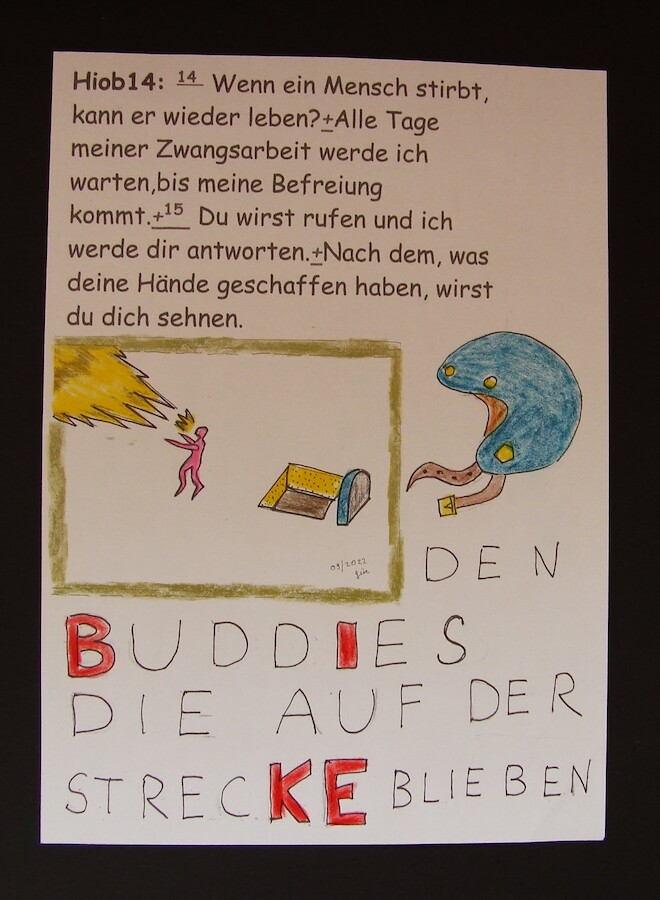 Hiob14: 14 Wenn ein Mensch stirbt,
kann er wieder leben?+Alle Tage
meiner Zwangsarbeit werde ich
warten,bis meine Befreiung
kommt.+15 Du wirst rufen und ich
werde dir antworten.+Nach dem, was
deine Hände geschaffen haben, wirst
du dich sehnen.
03/2022
DEN
BUDDIES
DIE AUF DER
STRECKE BLIEBEN